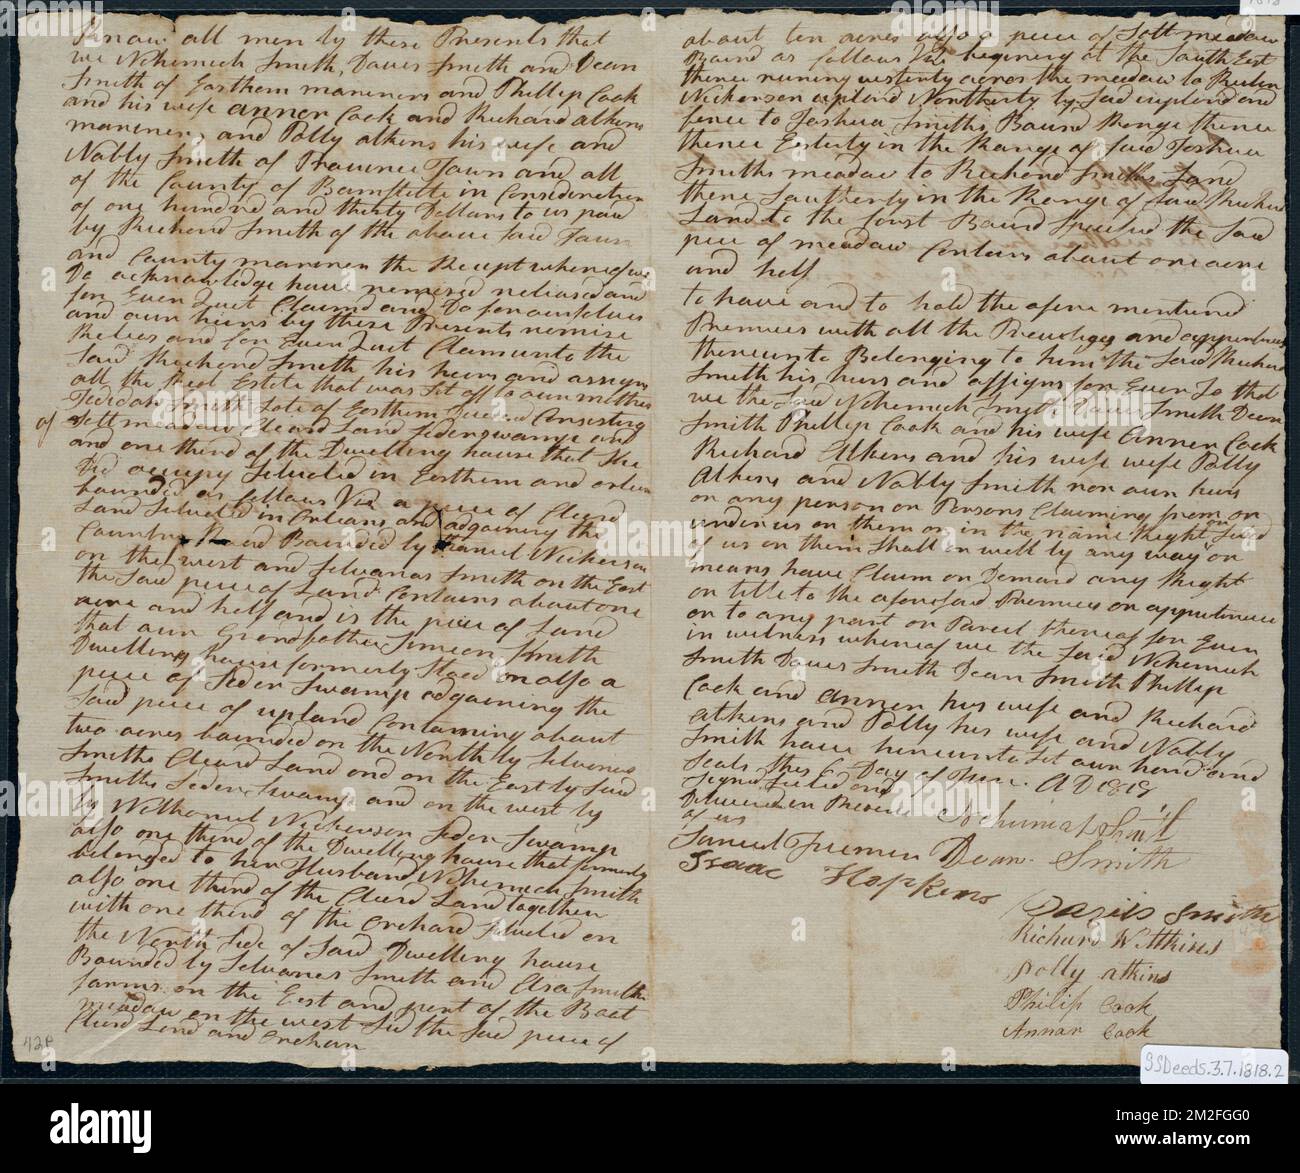 Know all men by these Presents that
we Nehemiah Smith, Daves Smith and Dean
Smith of Eastham mareners and Phillip Cook
and his wife annar Cook and Richard atkens
marener, and Polly atkens his wife and
Nabby Smith of Provence Town and all
of the County of Barnstable in Consideration
of one hundred and thirty Dollars to us paid
by Richard Smith of the above said Town
and County marener the Recept whereof we
Do acknowledge have remised relased and
for Ever Quit Claimd and Do for ourselves
and our heirs by these Presents remise
Reless and for Ever Quit Claim unto the
said Richard Smith his heirs and assigns
all the Reel Estate that was Set off to our mother
Smith Late of Eastham Deceased Consesting
of Solt meadow Cleard Land Seder swamp and
and one third of the Dwelling house that She
Did occupy Setueted in Eastham and orleans
bounded as follows Viz a piece of Cleard
Land Setueted in Orleans and adgoining the
Country Road Bounded by Nickerson
on the west and Selvanas Smith on the East
the said piece of Land Contains about one
acre and half and is the piece of Land
that our Grandfather Simeon Smith
Dwelling house formerly Stood on also a
piece of Seder Swamp adgoining the
said piece of upland Containing about
two acres bounded on the North by Selvanas
Smiths Cleard Land and on the East by said
Smiths Seder Swamp and on the west by
Nickerson Seder Swamp
also one third of the Dwelling house that formerly
belonged to her Husband Nehemiah Smith
also one third of the Cleard Land together
with one third of the orchard Setueted on
the North Side of said Dwelling house
Bounded by Selvanas Smith and Asa Smith
farms on the East and part of the Boat
meadow on the west Sid the said piece of
Cleard Land and orchard
about ten acres also a piece of Solt meadow
Bound as follows Viz begining at the South East
thence runing westerly across the meadow to
Nickerson upland Northerly by said upland and
fence to Joshua Smiths Bound Range thence
thence Esterly in the Range of said Joshua
Smiths meadow to Richard Smiths Land
thence Southerly in the Range of said Richard
Land to the first Bound the said
piece of meadow Contains about one acre
and half
to have and to hold the afore mentined
Premises with all the and appurtences
thereunto Belonging to him the said Richard
Smith his heirs and assigns for Ever So that
we the said Nehemiah Smith Daves Smith Dean
Smith Phillip Cook and his wife Annar Cook
Richard Atkens and his wife wife Polly
Atkens and Nabby Smith nor our heirs
or any person or Persons Claiming from or
under us or them or in the name Right or Sted
of us or them shall or well by any way or
means have Claim or Demand any Right
or title to the aforesaid Premises or appurtinces
or to any part or Parcel thereof for Ever
in witness whereof we the said Nehemiah
Smith Daves Smith Dean Smith Phillip
Cook and annar his wife and Richard
Atkens and Polly his wife and Nabby
Smith have hereunto Set our hand and
Seals this 6 Day of June AD 1818
Signed Seeled and
Delivered in Presence
of us
Samuel Freeman
Isaac Hopkins
Nehemiah Smith
Dean Smith
Davis Smith
Richard W. Atkins
Polly atkins
Philip Cook
Annar Cook
42P
9SDeeds.3.7.1818.2
alamy
Image ID: 2M2FGG0
www.alamy.com